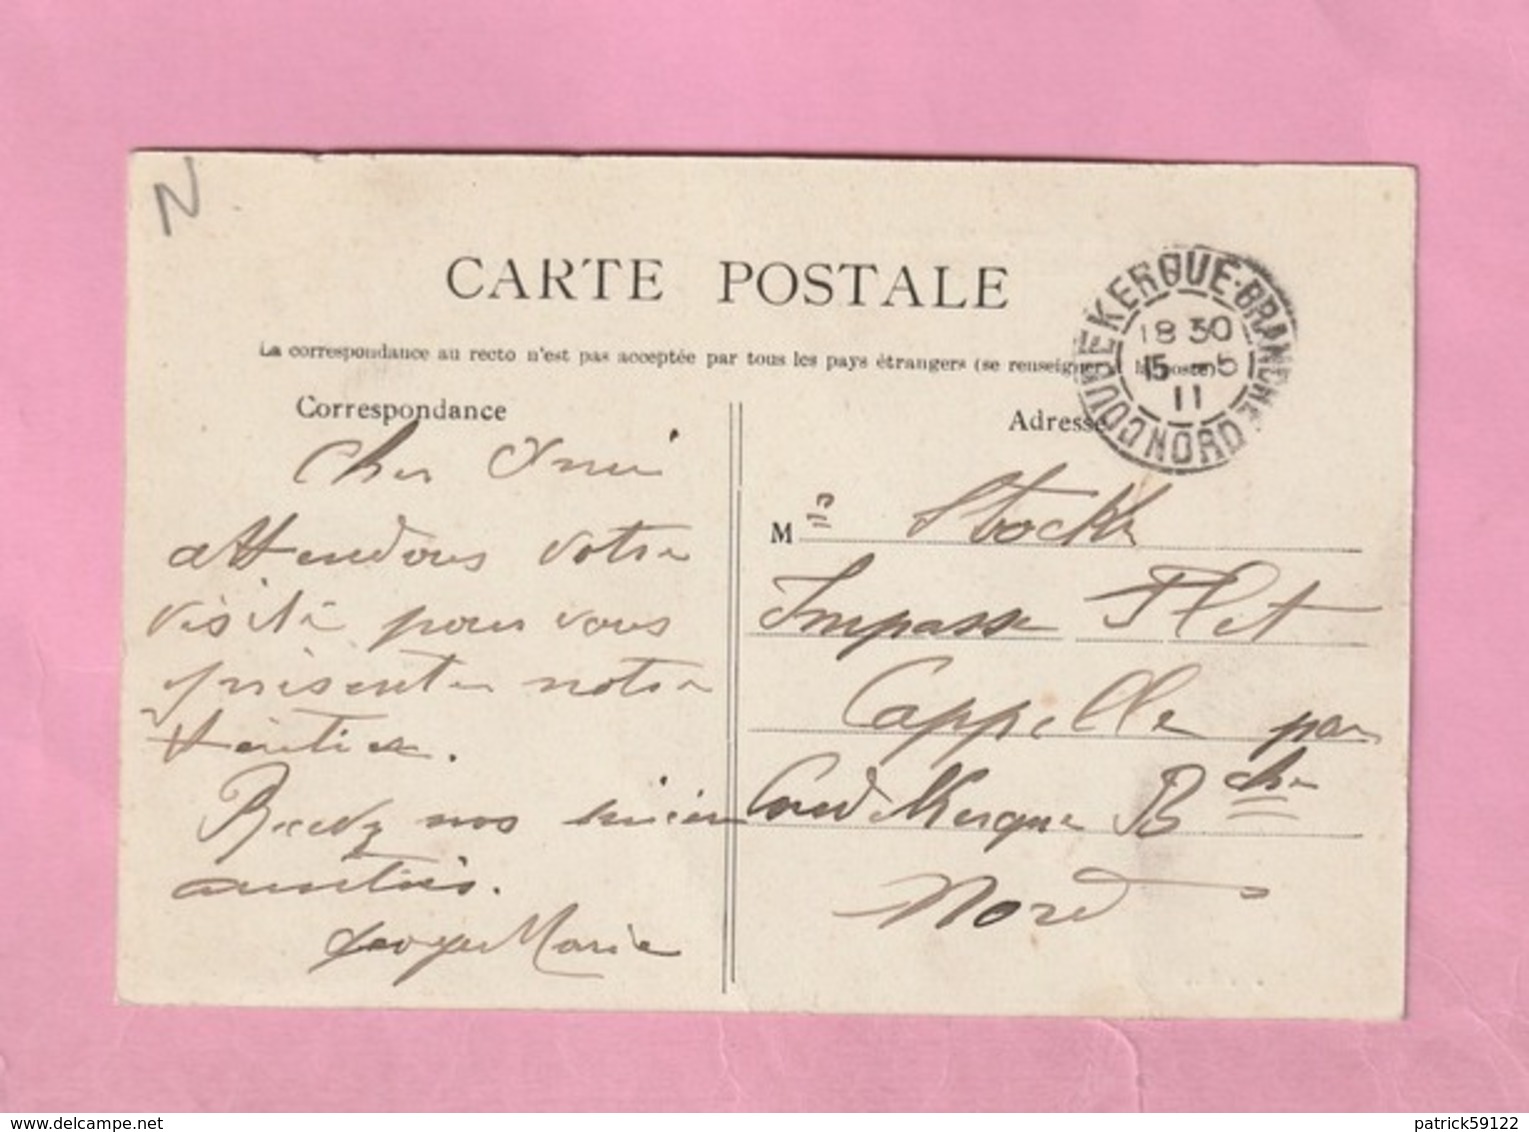 N
CARTE POSTALE
La correspondance au recto n'est pas acceptée par tous les pays étrangers (se renseigner à la poste)
COUDEKERQUE-BRANCHE
18 30
15 - 5
11
NORD
Correspondance
Cher Ami
attendons votre
visite pour vous
présenter notre
Recevez nos
amitiés.
Georges Marie
Adresse
M
Impasse
Cappelle par
Coudekerque Bche
Nord
delcampe.net
patrick59122